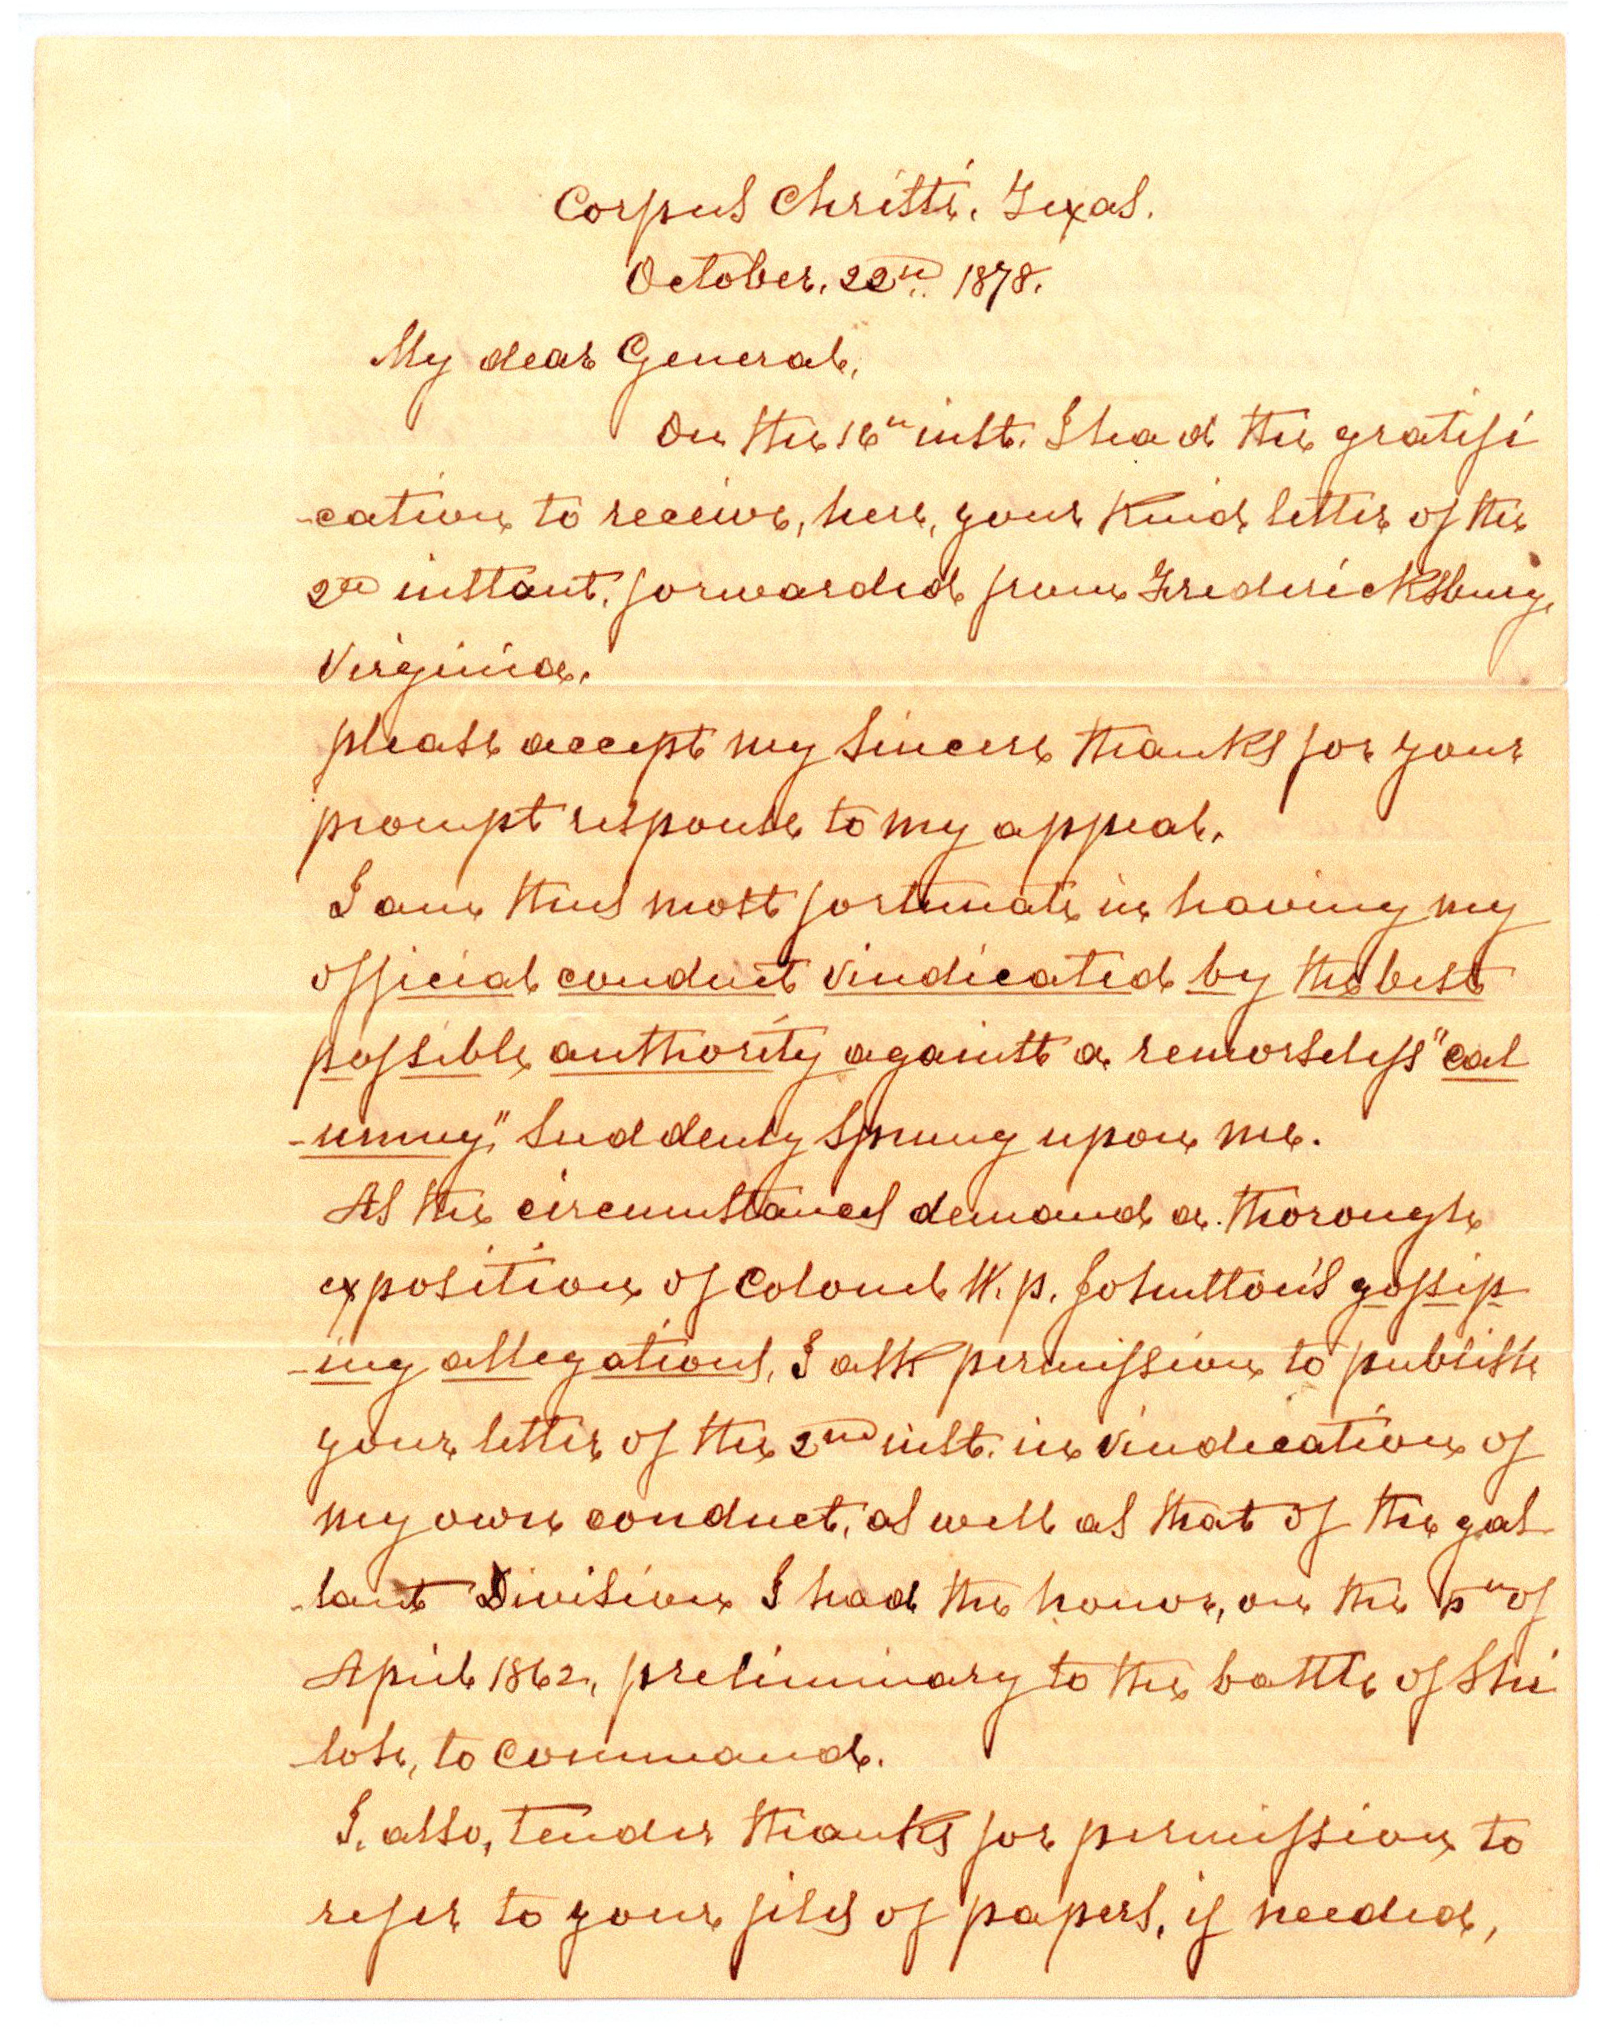 Corpus Christi, Texas.
October, 22nd. 1878.
My dear General,
On the 16th inst. I had the gratifi
-cation to receive, here, your kind letter of the
2nd instant, forwarded from Fredericksburg,
Virginia.
please accept my sincere thanks for your
prompt response to my appeal.
I am thus most fortunate in having my
official conduct vindicated by the best
possible authority against a remorseless "cal
-umny," suddenly sprung upon me.
As the circumstances demand a thorough
exposition of Colonel W. p. Johnston's gossip
-ing allegations, I ask permission to publish
your letter of the 2nd inst. in vindication of
my own conduct, as well as that of the gal
-lant Division I had the honor, on the 5th of
April 1862, preliminary to the battle of Shi
-loh, to command.
I, also, tender thanks for permission to
refer to your files of papers, if needed,